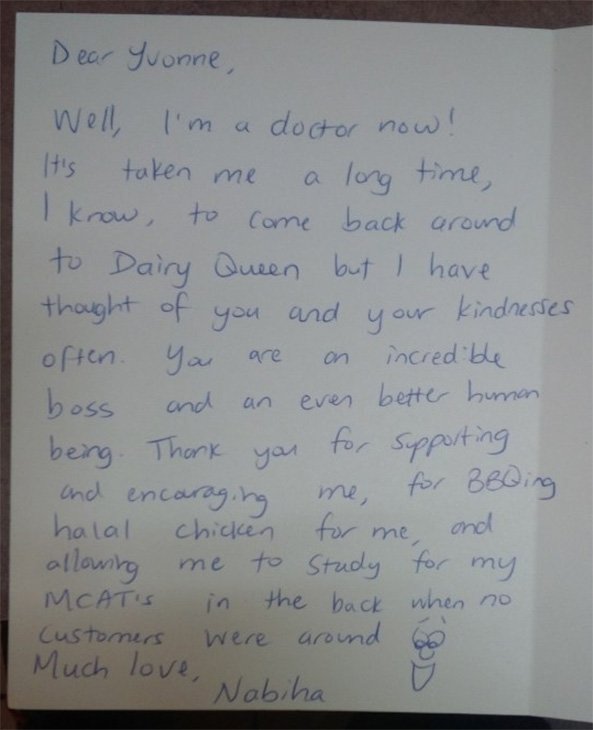 Dear Yvonne,
Well, I'm a doctor now!
It's taken me a long time,
I know, to come back around
to Dairy Queen but I have
thought of you and your kindnesses
often. You are an incredible
boss and an even better human
being. Thank you for supporting
and encouraging me, for BBQing
halal chicken for me, and
allowing me to study for my
MCAT's in the back when no
customers were around
Much love,
Nabiha